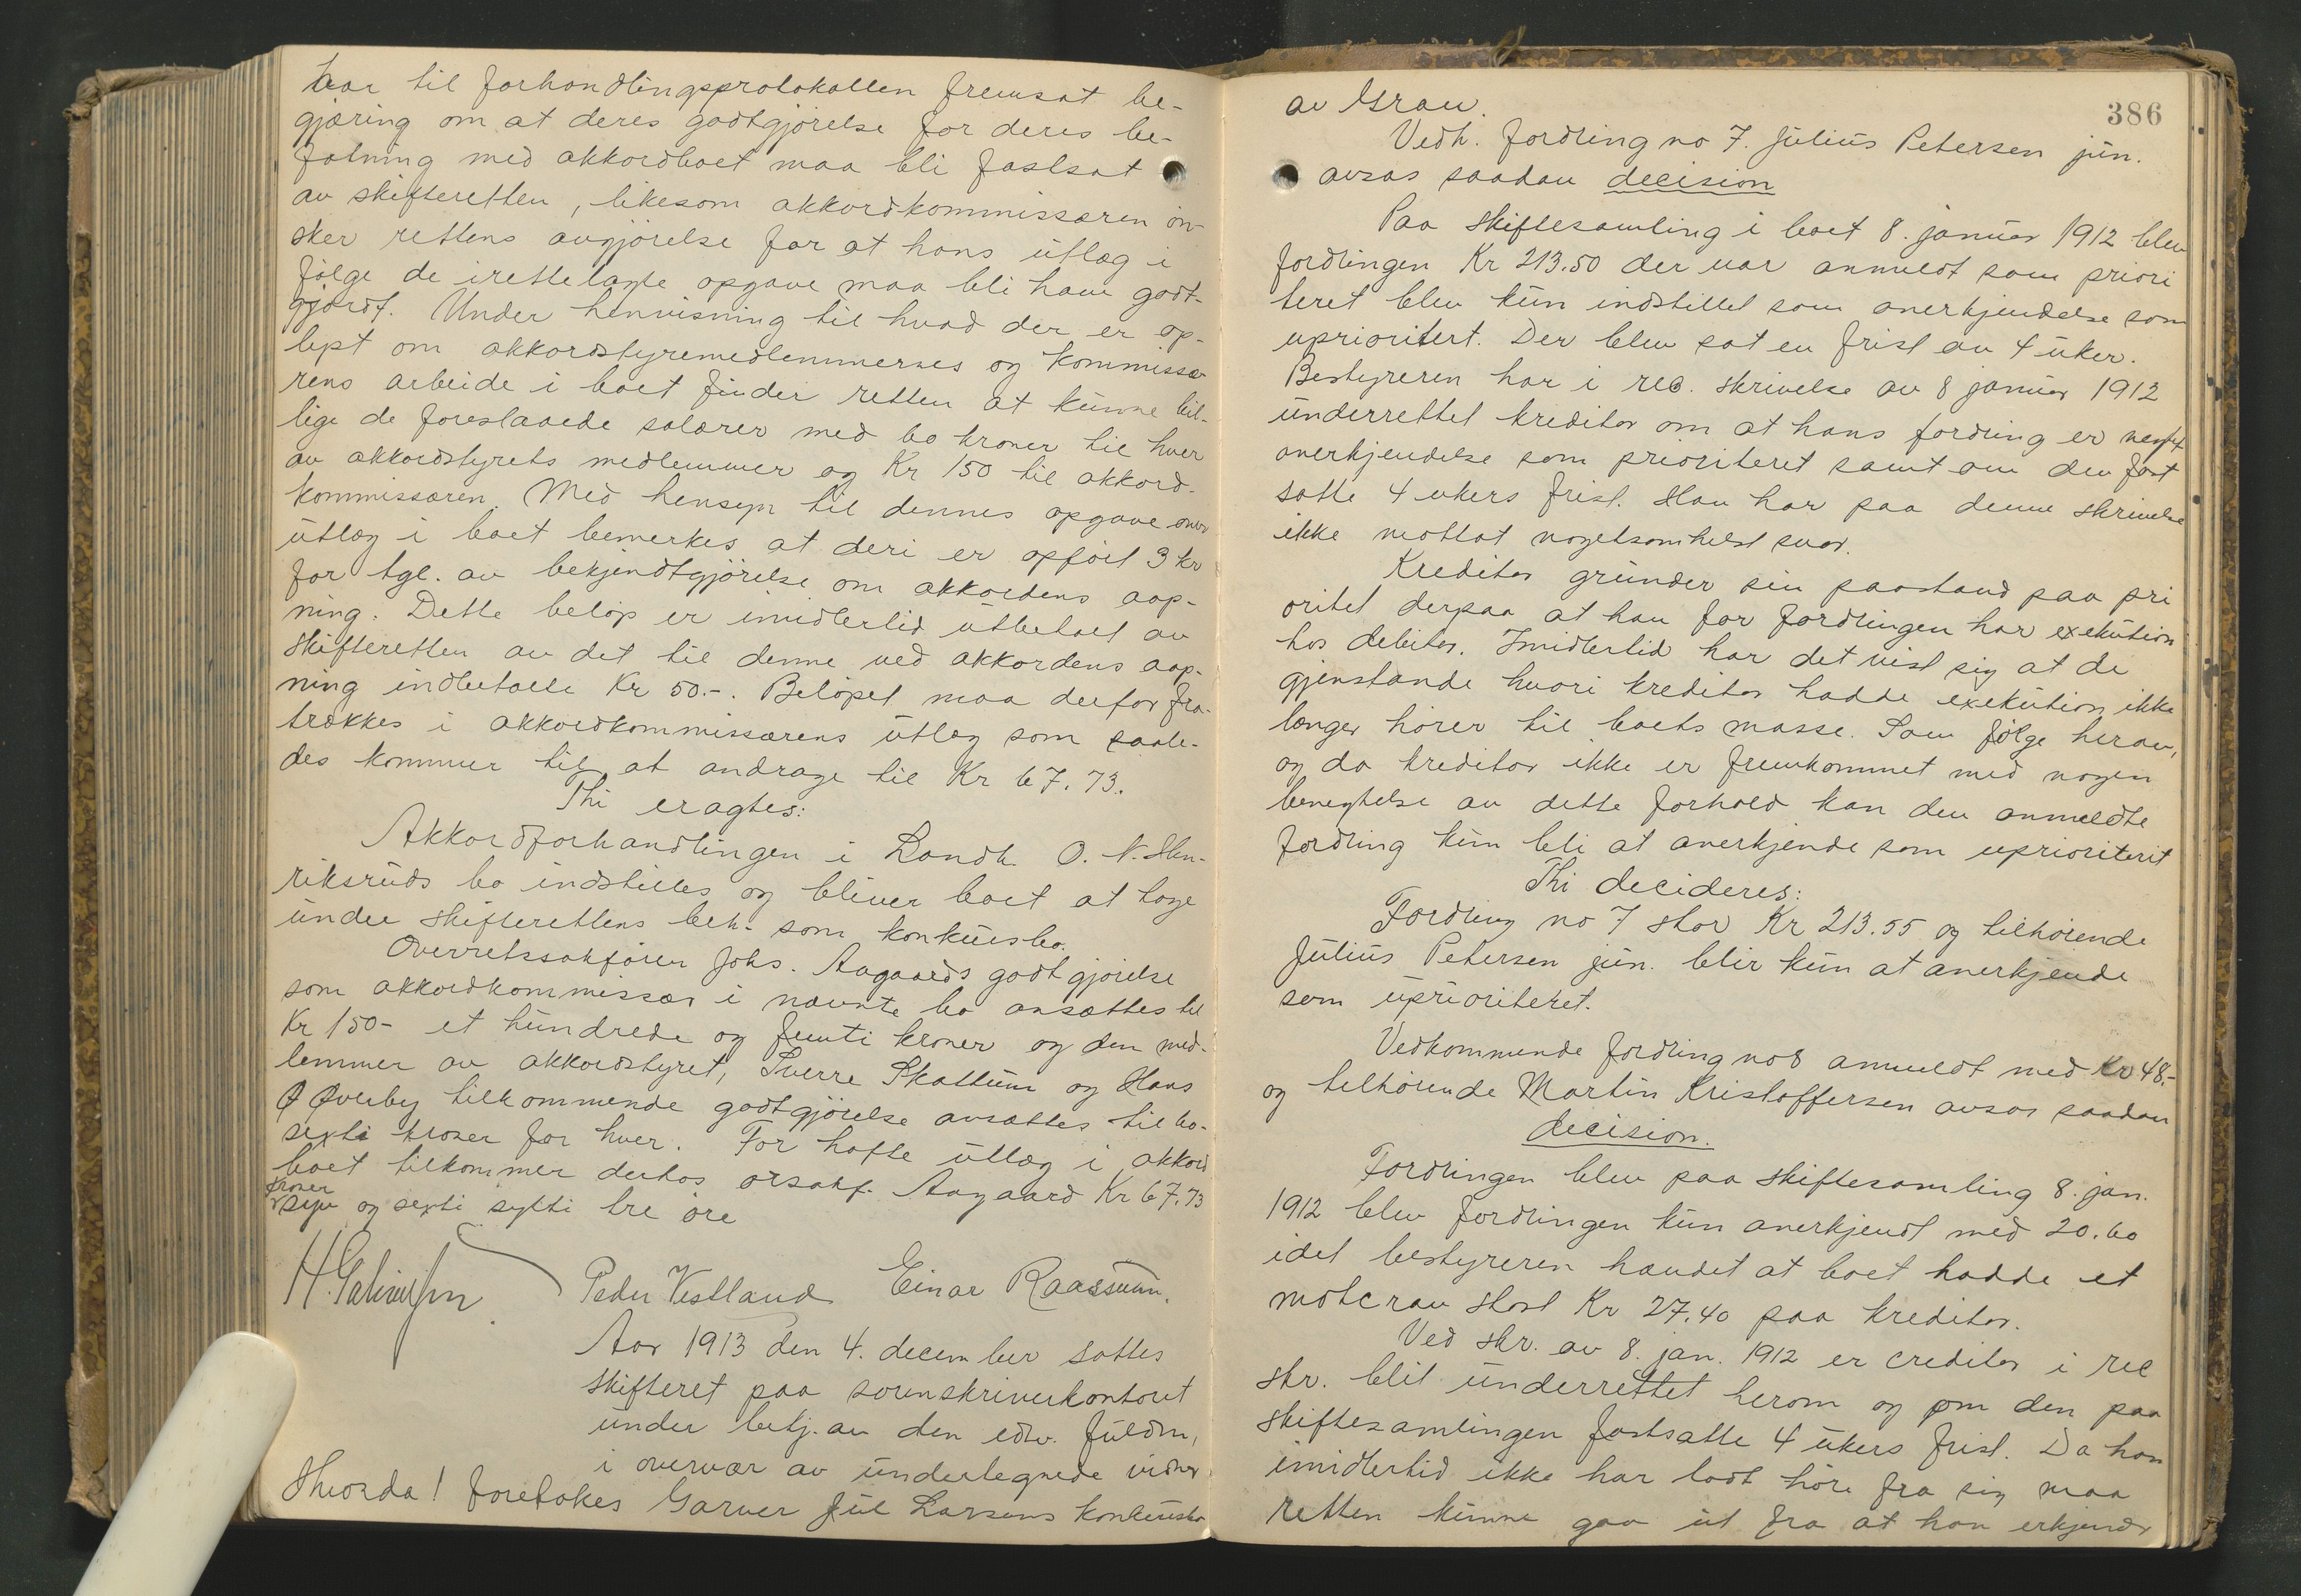 har til forhandlingsprotokollen fremsat be-
gjæring om at deres godtgjörelse for deres be-
fatning med akkordboet maa bli fastsat
av skifteretten, likesom akkordkommissæren ön-
sker rettens avgjörelse for at hans utlæg i
fölge de irettelagte opgave maa bli ham godt-
gjordt. Under henvisning til hvad der er op-
lyst om akkordstyremedlemmernes og kommissæ
rens arbeide i boet finder retten at kunne bil-
lige de foreslaaede salærer med 60 kroner til hver
av akkordstyrets medlemmer og Kr 150 til akkord-
kommissæren. Med hensyn til dennes opgave over
utlæg i boet bemerkes at deri er opfört 3 kr
for tgl. av bekjendtgjörelse om akkordens aap-
ning. Dette belöp er imidlertid utbetalt av
skifteretten av det til denne ved akkordens aap-
ning indbetalte Kr 50.-. Belöpet maa derfor fra-
trækkes i akkordkommissærens utlæg som saale-
des kommer til at andrage til Kr 67.73.
Thi eragtes:
Akkordforhandlingen i Landh. O. N. Hen-
riksruds bo indstilles og bliver boet at tage
under skifterettens beh. som konkursbo.
Overretssakförer Johs. Aagaards godtgjörelse
som akkordkommissær i nævnte bo ansættes til
Kr 150- et hundrede og femti kroner og den med-
lemmer av akkordstyret, Sverre Skattum og Hans
O Överby tilkommende godtgjörelse ansættes til 60-
sexti kroner for hver. For hafte utlæg i akkord
boet tilkommer derhos orsakf. Aagaard Kr 67.73
kroner
syv og sexti sytti tre öre
Peder Vestland Einar Raassum.
Aar 1913 den 4. december sattes
skifteret paa sorenskriverkontoret
under betj. av den edsv. fuldm,
i overvær av undertegnede vidner
Hvorda! foretokes Garver Jul Larsens konkursbo
386
av Gran.
Vedk. fordring no 7. Julius Petersen jun.
avsas saadan decision
Paa skiftesamling i boet 8. januar 1912 blev
fordringen Kr 213.50 der var anmeldt som priori
teret blev kun indstillet som anerkjendelse som
uprioritert. Der blev sat en frist av 4 uker.
Bestyreren har i rec. skrivelse av 8 januar 1912
underrettet kreditor om at hans fordring er negtet
anerkjendelse som prioriteret samt om den fast
satte 4 ukers frist. Han har paa denne skrivelse
ikke mottat nogetsomhelst svar.
Kreditor grunder sin paastand paa pri
oritet derpaa at han for fordringen har exekution
hos debitor. Imidlertid har det vist sig at de
gjenstande hvori kreditor hadde exekution ikke
længer hörer til boets masse. Som fölge herav,
og da kreditor ikke er fremkommet med nogen
benegtelse av dette forhold kan den anmeldte
fordring kun bli at anerkjende som uprioriterit
Thi decideres:
Fordring no 7 stor Kr 213.55 og tilhörende
Julius Petersen jun. blir kun at anerkjende
som uprioriteret.
Vedkommende fordring no 8 anmeldt med Kr 48.-
og tilhörende Martin Kristoffersen avsas saadan
decision.
Fordringen blev paa skiftesamling 8. jan.
1912 blev fordringen kun anerkjendt med 20.60
idet bestyreren hævdet at boet hadde et
motcrav stort Kr 27.40 paa kreditor.
Ved skr. av 8. jan. 1912 er creditor i rec
skr. blit underrettet herom og om den paa
skiftesamlingen fastsatte 4 ukers frist. Da han
imidlertid ikke har ladt höre fra sig maa
retten kunne gaa ut fra at han erkjender